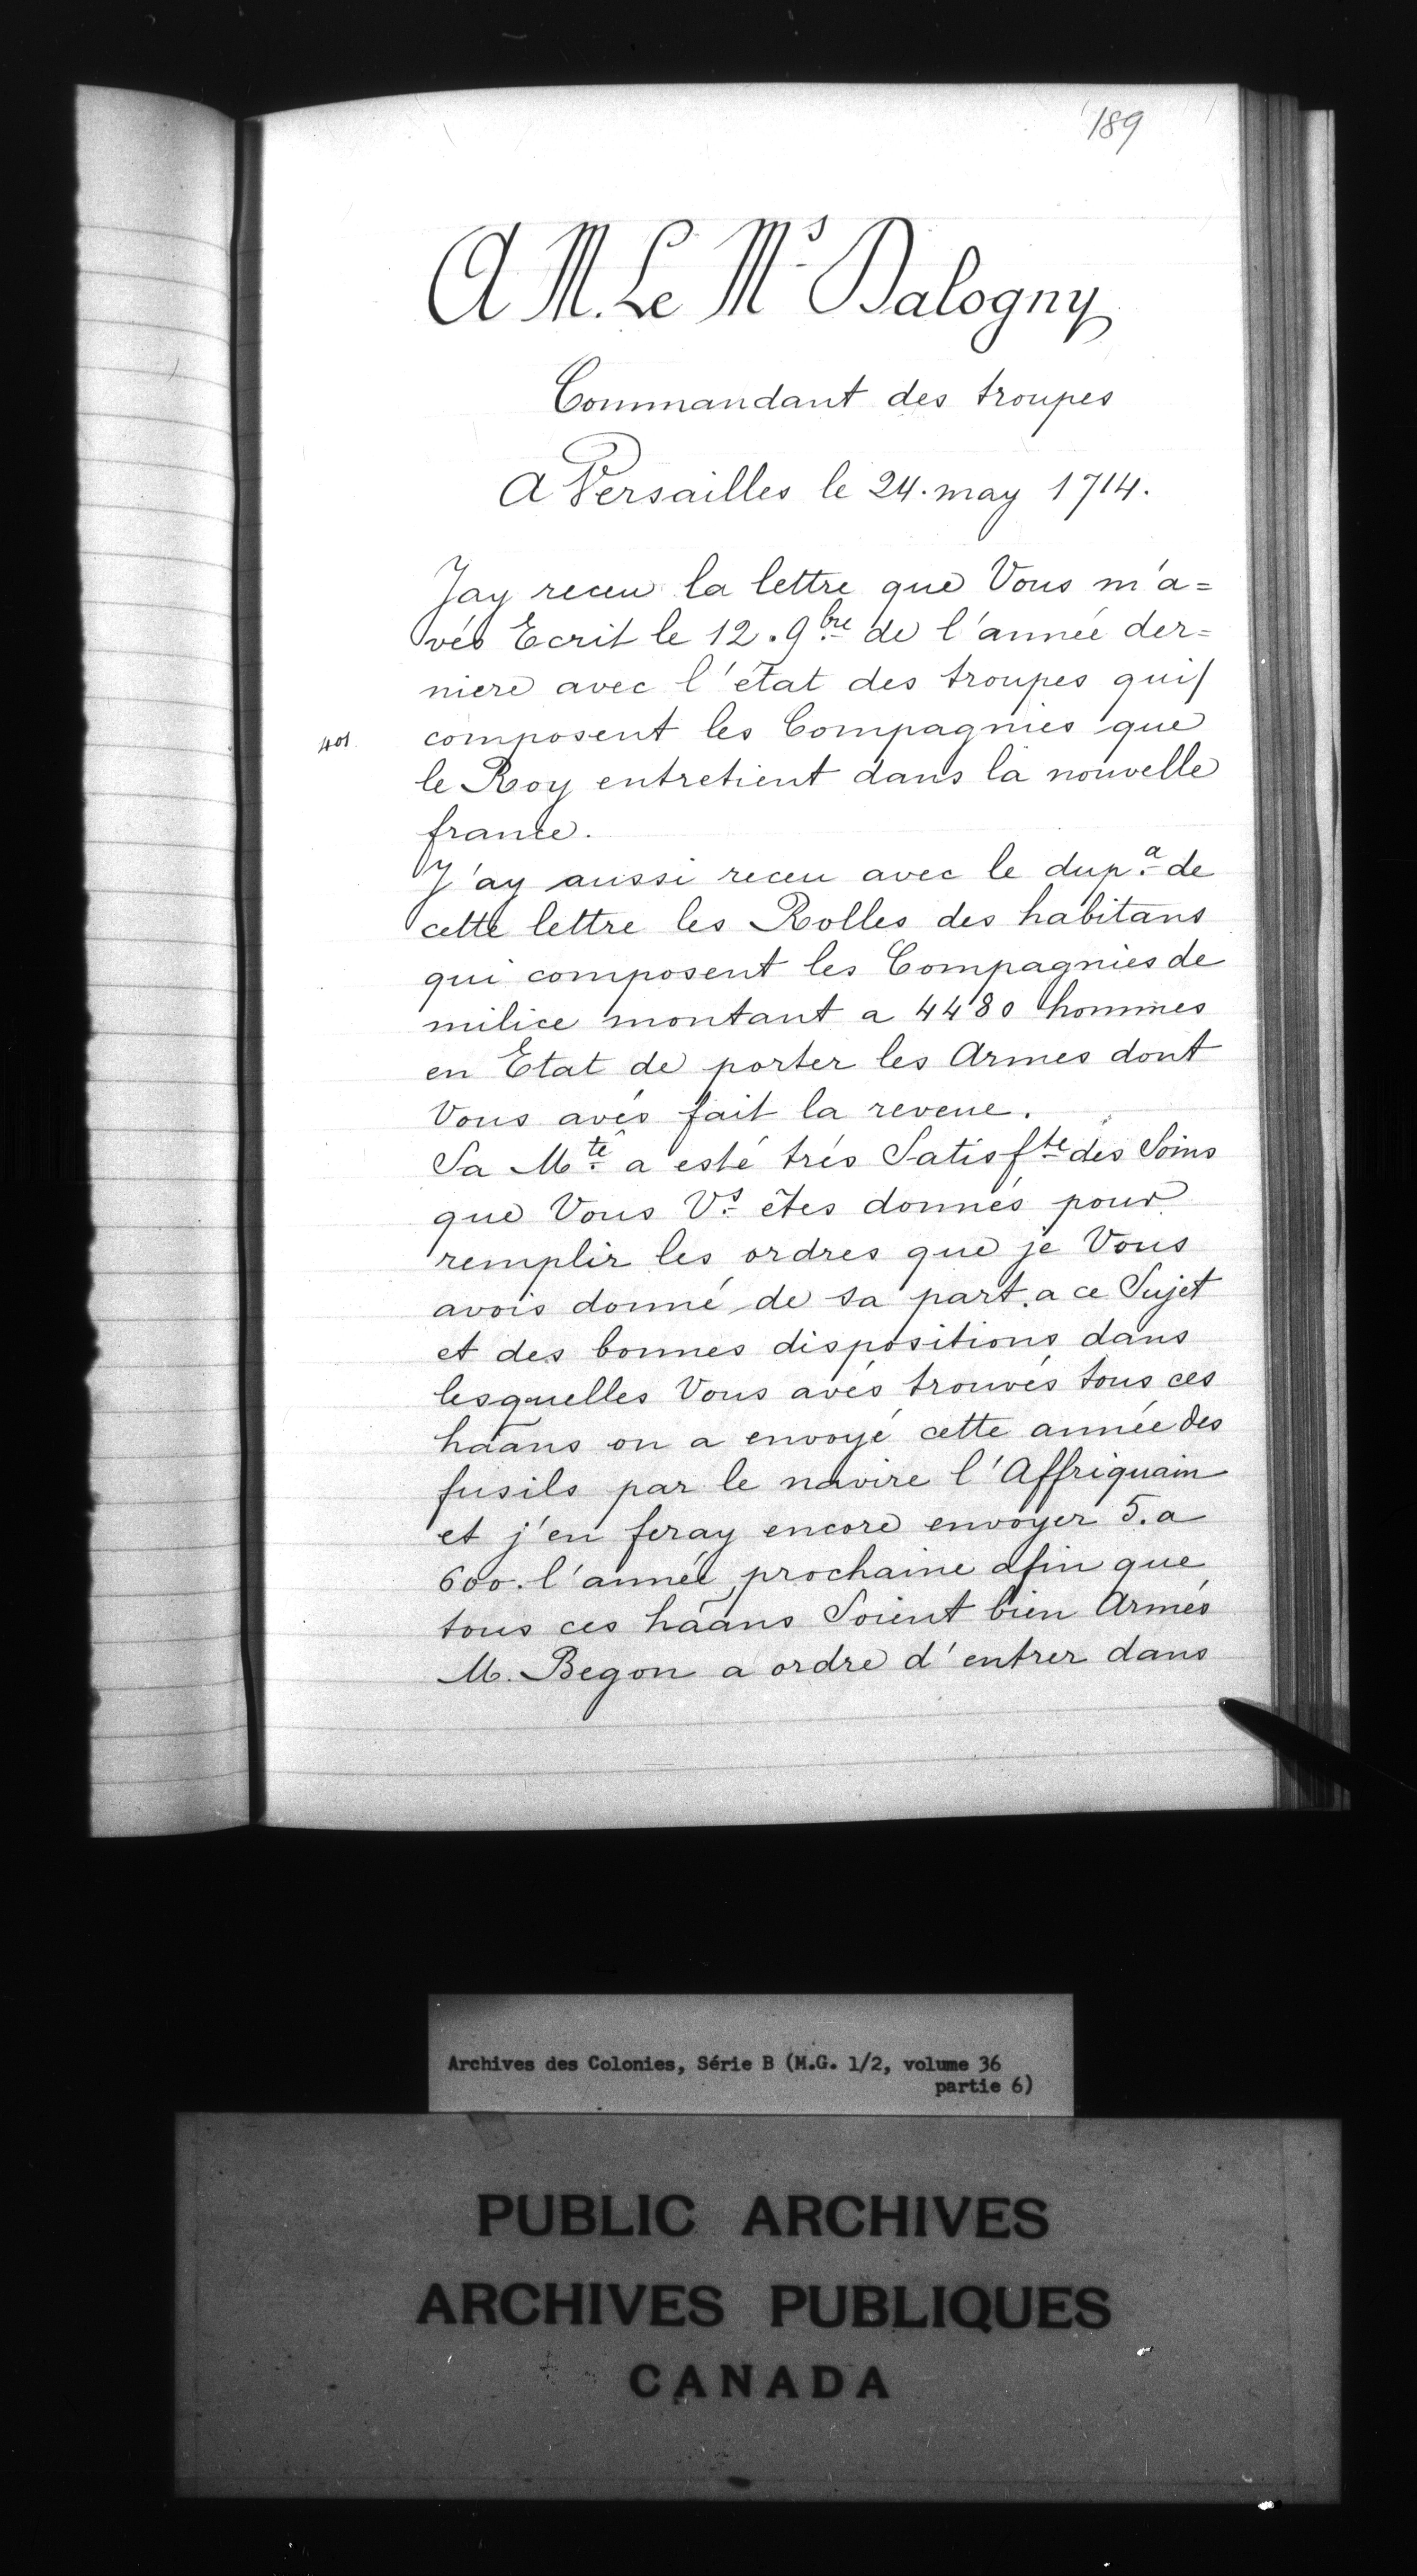 189
A M. Le Ms Dalogny
Commandant des troupes
A Versailles le 24. may 1714.
Jay receu la lettre que Vous m'a=
vés Ecrit le 12. 9bre de l'année der=
niere avec l'état des troupes qui/
401
composent les Compagnies que
le Roy entretient dans la nouvelle
france.
J'ay aussi receu avec le dup.a de
cette lettre les Rolles des habitans
qui composent les Compagnies de
milice montant a 4480 hommes
en Etat de porter les Armes dont
Vous avés fait la reveue.
Sa Mté a esté trés Satisfte des Soins
que Vous Vs êtes donnés pour
remplir les ordres que je Vous
avois donné de sa part. a ce Sujet
et des bonnes dispositions dans
lesquelles Vous avés trouvés tous ces
hãans on a envoyé cette année des
fusils par le navire l'Affriquain
et j'en feray encore envoyer 5. a
600. l'année prochaine afin que
tous ces hãans Soient bien Armés
M. Begon a ordre d'entrer dans
Archives des Colonies, Série B (M.G. 1/2, volume 36
partie 6)
PUBLIC ARCHIVES
ARCHIVES PUBLIQUES
CANADA